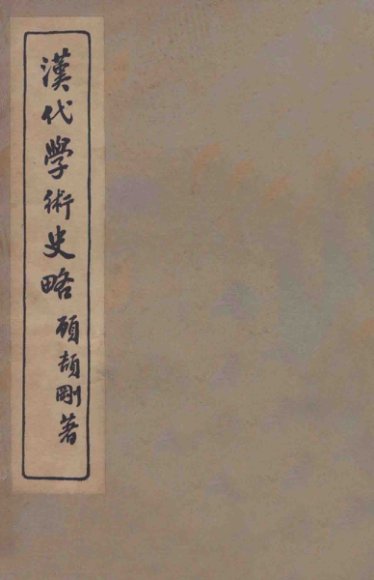 漢代學術史略 顧頡剛著